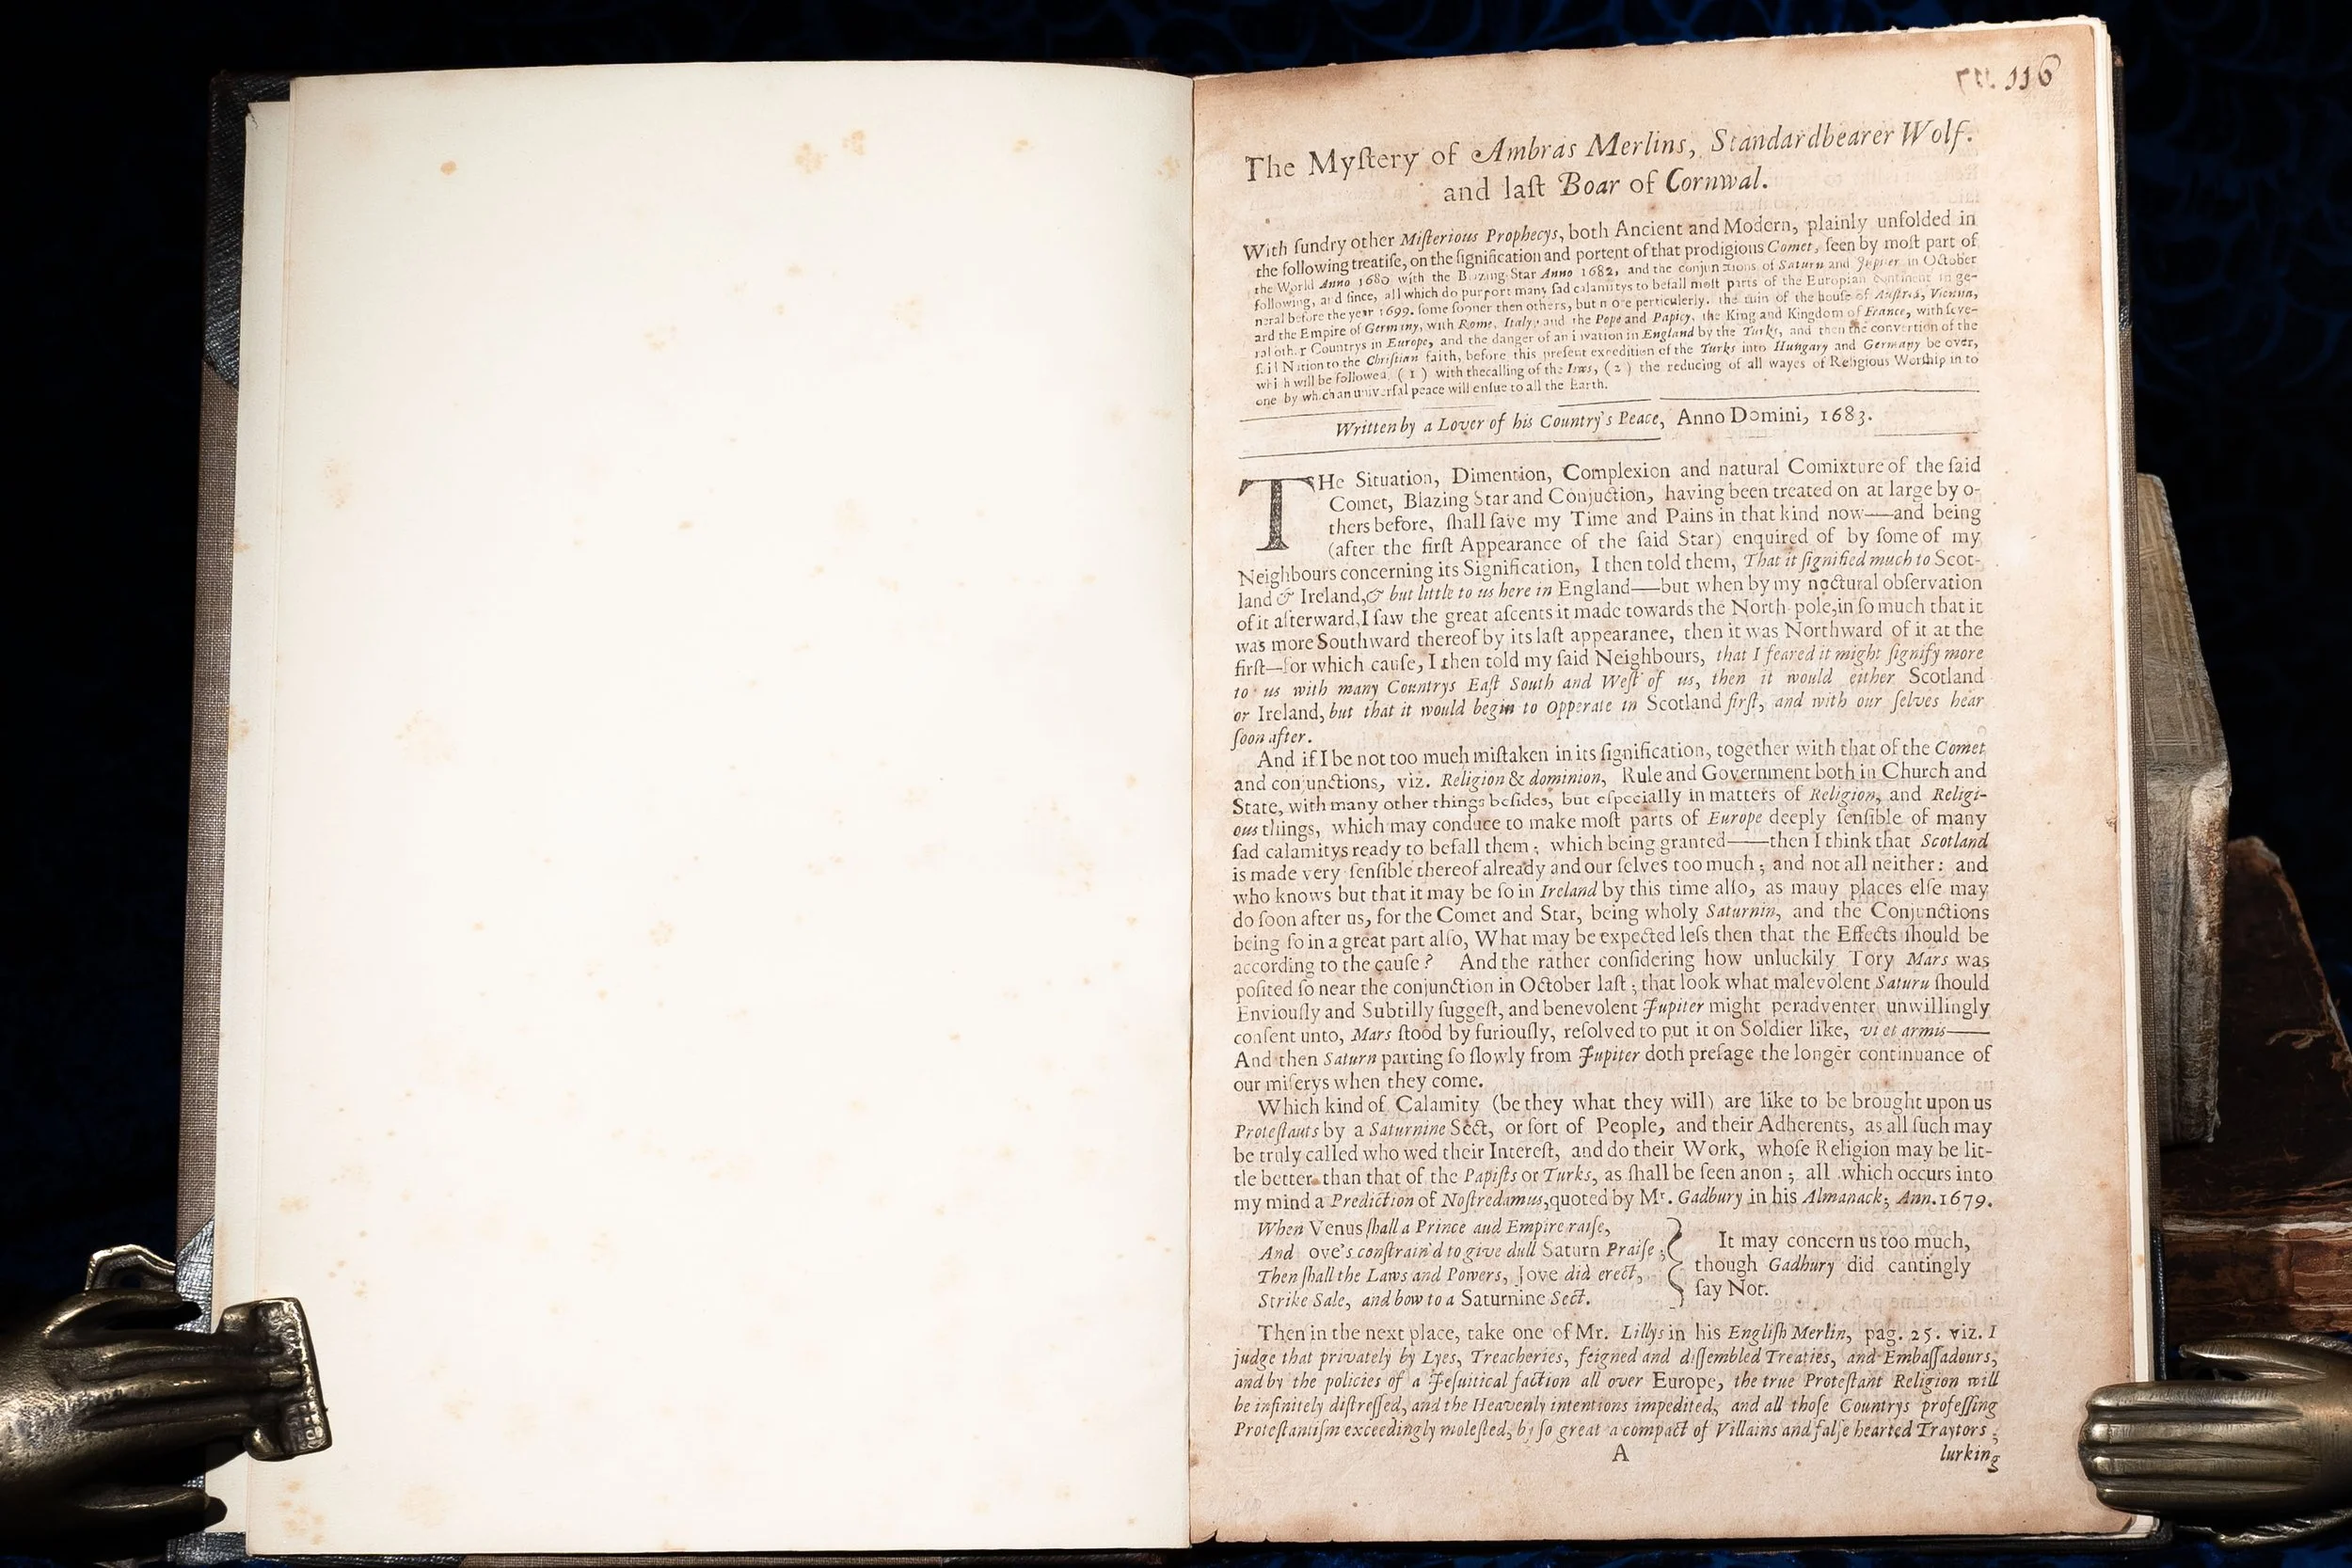 116
The Myſtery of Ambras Merlins, Standardbearer Wolf.
and laſt Boar of Cornwal.
With ſundry other Miſterious Prophecys, both Ancient and Modern, plainly unfolded in
the following treatiſe, on the ſignification and portent of that prodigious Comet, ſeen by moſt part of
the World Anno 1680 with the Blazing Star Anno 1682, and the conjunctions of Saturn and Jupiter in October
following, and ſince, all which do purport many ſad calamitys to befall moſt parts of the Europian Continent in ge-
neral before the year 1699. ſome ſooner then others, but more perticulerly. the ruin of the houſe of Auſtria, Vienna,
and the Empire of Germany, with Rome, Italy, and the Pope and Papicy, the King and Kingdom of France, with ſeve-
ral other Countrys in Europe, and the danger of an invation in England by the Turks, and then the convertion of the
ſaid Nation to the Chriſtian faith, before this preſent expedition of the Turks into Hungary and Germany be over,
which will be followed (1) with the calling of the Iews, (2) the reducing of all wayes of Religious Worſhip in to
one by which an univerſal peace will enſue to all the Earth.
Written by a Lover of his Country's Peace, Anno Domini, 1683.
THe Situation, Dimention, Complexion and natural Comixture of the ſaid
Comet, Blazing Star and Conjuction, having been treated on at large by o-
thers before, ſhall ſave my Time and Pains in that kind now—and being
(after the firſt Appearance of the ſaid Star) enquired of by ſome of my
Neighbours concerning its Signification, I then told them, That it ſignified much to Scot-
land & Ireland,& but little to us here in England—but when by my noctural obſervation
of it afterward,I ſaw the great aſcents it made towards the North-pole,in ſo much that it
was more Southward thereof by its laſt appearanee, then it was Northward of it at the
firſt—for which cauſe, I then told my ſaid Neighbours, that I feared it might ſignify more
to us with many Countrys Eaſt South and Weſt of us, then it would either Scotland
or Ireland, but that it would begin to Opperate in Scotland firſt, and with our ſelves hear
ſoon after.
And if I be not too much miſtaken in its ſignification, together with that of the Comet
and conjunctions, viz. Religion & dominion, Rule and Government both in Church and
State, with many other things beſides, but eſpecially in matters of Religion, and Religi-
ous things, which may conduce to make moſt parts of Europe deeply ſenſible of many
ſad calamitys ready to befall them; which being granted——then I think that Scotland
is made very ſenſible thereof already and our ſelves too much; and not all neither: and
who knows but that it may be ſo in Ireland by this time alſo, as many places elſe may
do ſoon after us, for the Comet and Star, being wholy Saturnin, and the Conjunctions
being ſo in a great part alſo, What may be expected leſs then that the Effects ſhould be
according to the cauſe? And the rather conſidering how unluckily Tory Mars was
poſited ſo near the conjunction in October laſt; that look what malevolent Saturu ſhould
Enviouſly and Subtilly ſuggeſt, and benevolent Jupiter might peradventer unwillingly
conſent unto, Mars ſtood by furiouſly, reſolved to put it on Soldier like, vi et armis——
And then Saturn parting ſo ſlowly from Jupiter doth preſage the longer continuance of
our miſerys when they come.
Which kind of Calamity (be they what they will) are like to be brought upon us
Proteſtauts by a Saturnine Sect, or ſort of People, and their Adherents, as all ſuch may
be truly called who wed their Intereſt, and do their Work, whoſe Religion may be lit-
tle better than that of the Papiſts or Turks, as ſhall be ſeen anon; all which occurs into
my mind a Prediction of Noſtredamus,quoted by Mr. Gadbury in his Almanack; Ann.1679.
When Venus ſhall a Prince and Empire raiſe,
And ove's conſtrain'd to give dull Saturn Praiſe;
Then ſhall the Laws and Powers, Jove did erect,
Strike Sale, and bow to a Saturnine Sect.
It may concern us too much,
though Gadbury did cantingly
ſay Not.
Then in the next place, take one of Mr. Lillys in his Engliſh Merlin, pag. 25. viz. I
judge that privately by Lyes, Treacheries, feigned and diſſembled Treaties, and Embaſſadours,
and by the policies of a Jeſuitical faction all over Europe, the true Proteſtant Religion will
be infinitely diſtreſſed, and the Heavenly intentions impedited, and all thoſe Countrys profeſſing
Proteſtantiſm exceedingly moleſted, by ſo great a compact of Villains and falſe hearted Traytors;
A
lurking